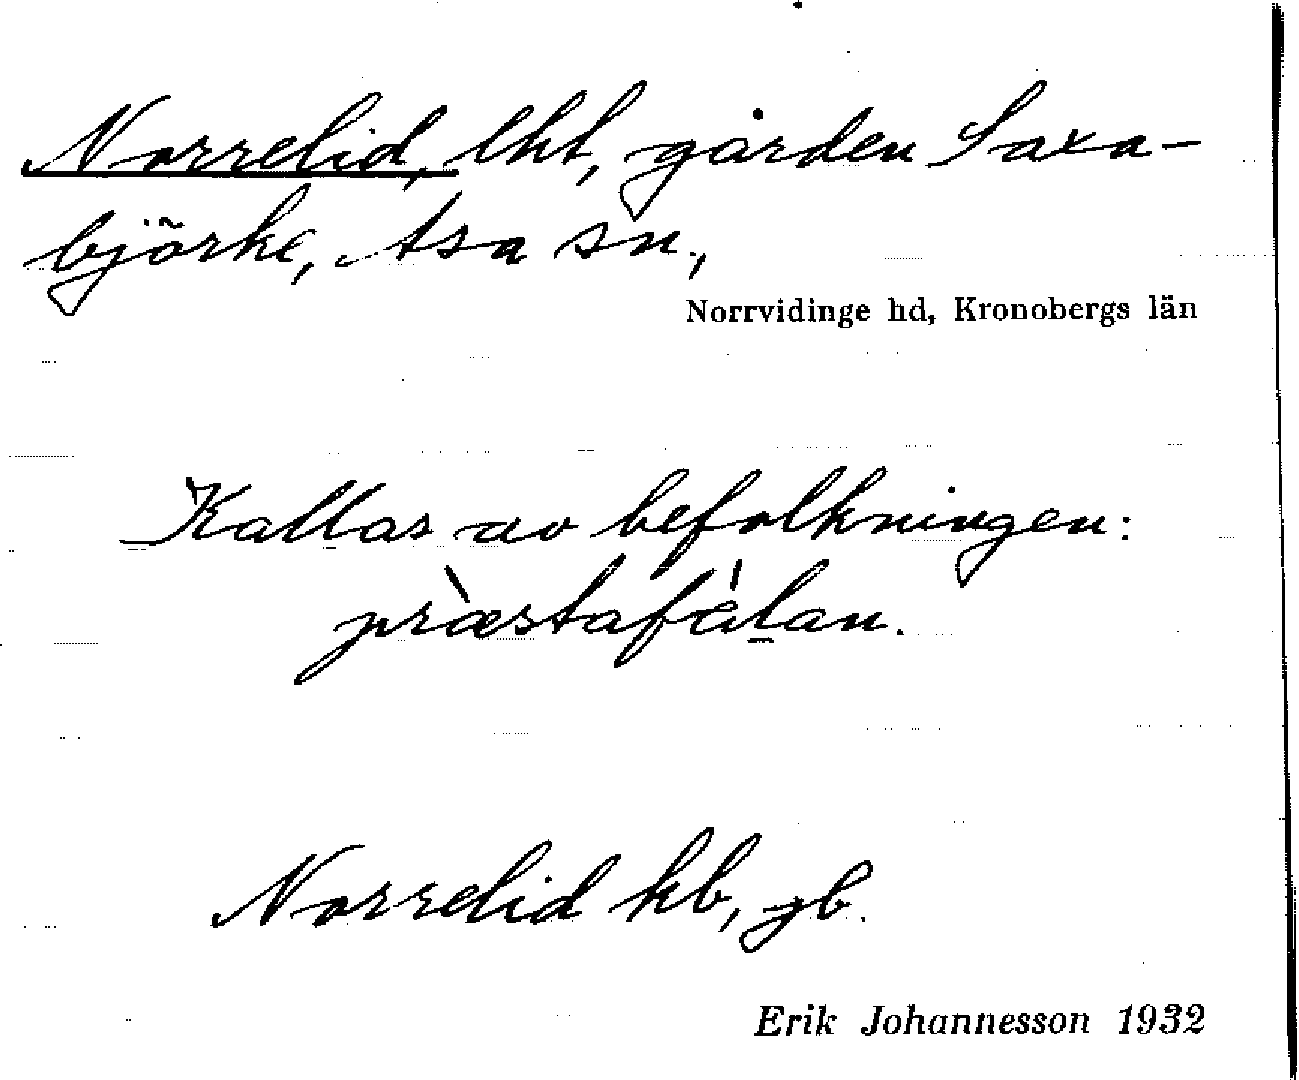 Norrelid, lht, gården Saxa-
björke, Asa sn,
Norrvidinge hd, Kronobergs län
Kallas av befolkningen:
præ̀stafáḻan.
Norrelid kb, jb.
Erik Johannesson 1932